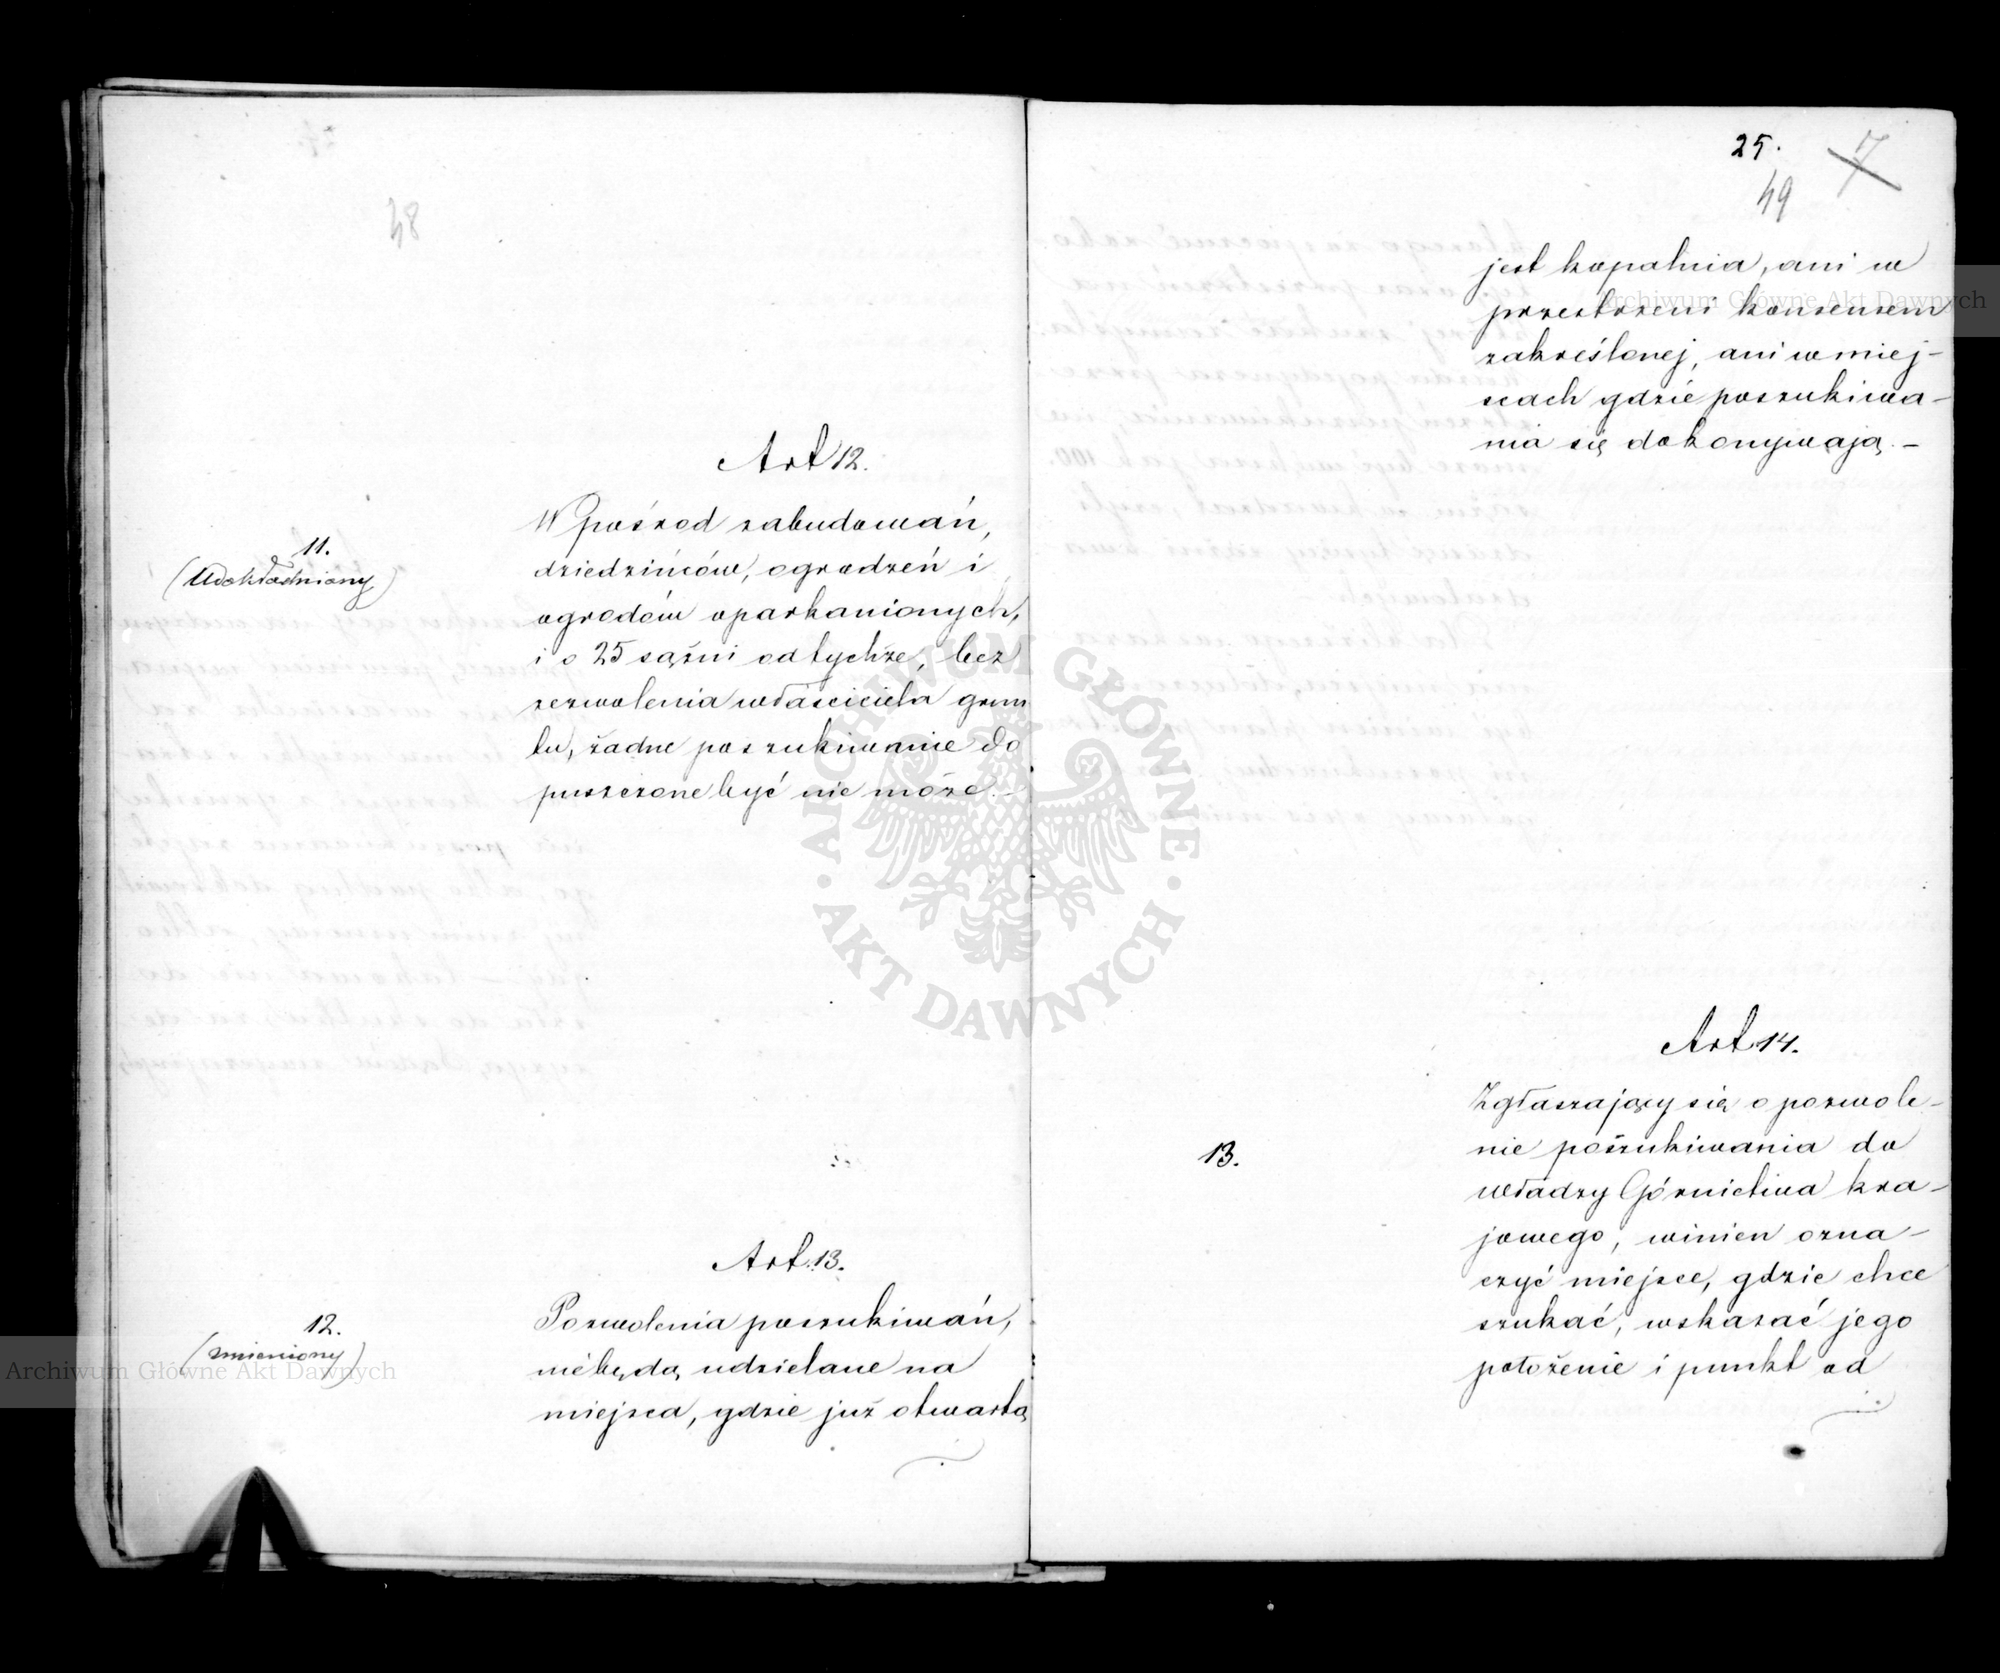 48
Art 12.
11.
(Udokładniony)
W pośrod zabudowań,
dziedzińców, ogrodzeń i
ogrodów oparkanionych,
i o 25 sążni od tychże, bez
zezwolenia właściciela grun
tu, żadne poszukiwanie do
puszczone być nie może. –
Art. 13.
12.
(zmieniony)
Pozwolenia poszukiwań,
nie będą udzielane na
miejsca, gdzie już otwartą
25.
7
49
jest kopalnia, ani w
przestrzeni konsensem
zakreślonej, ani w miej-
scach gdzie poszukiwa-
nia się dokonywają. –
Art. 14.
13.
Zgłaszający się o pozwole-
nie poszukiwania do
władzy Górnictwa kra-
jowego, winien ozna-
czyć miejsce, gdzie chce
szukać, wskazać jego
położenie i punkt od
Archiwum Główne Akt Dawnych
Archiwum Główne Akt Dawnych
ARCHIWUM GŁÓWNE
AKT DAWNYCH